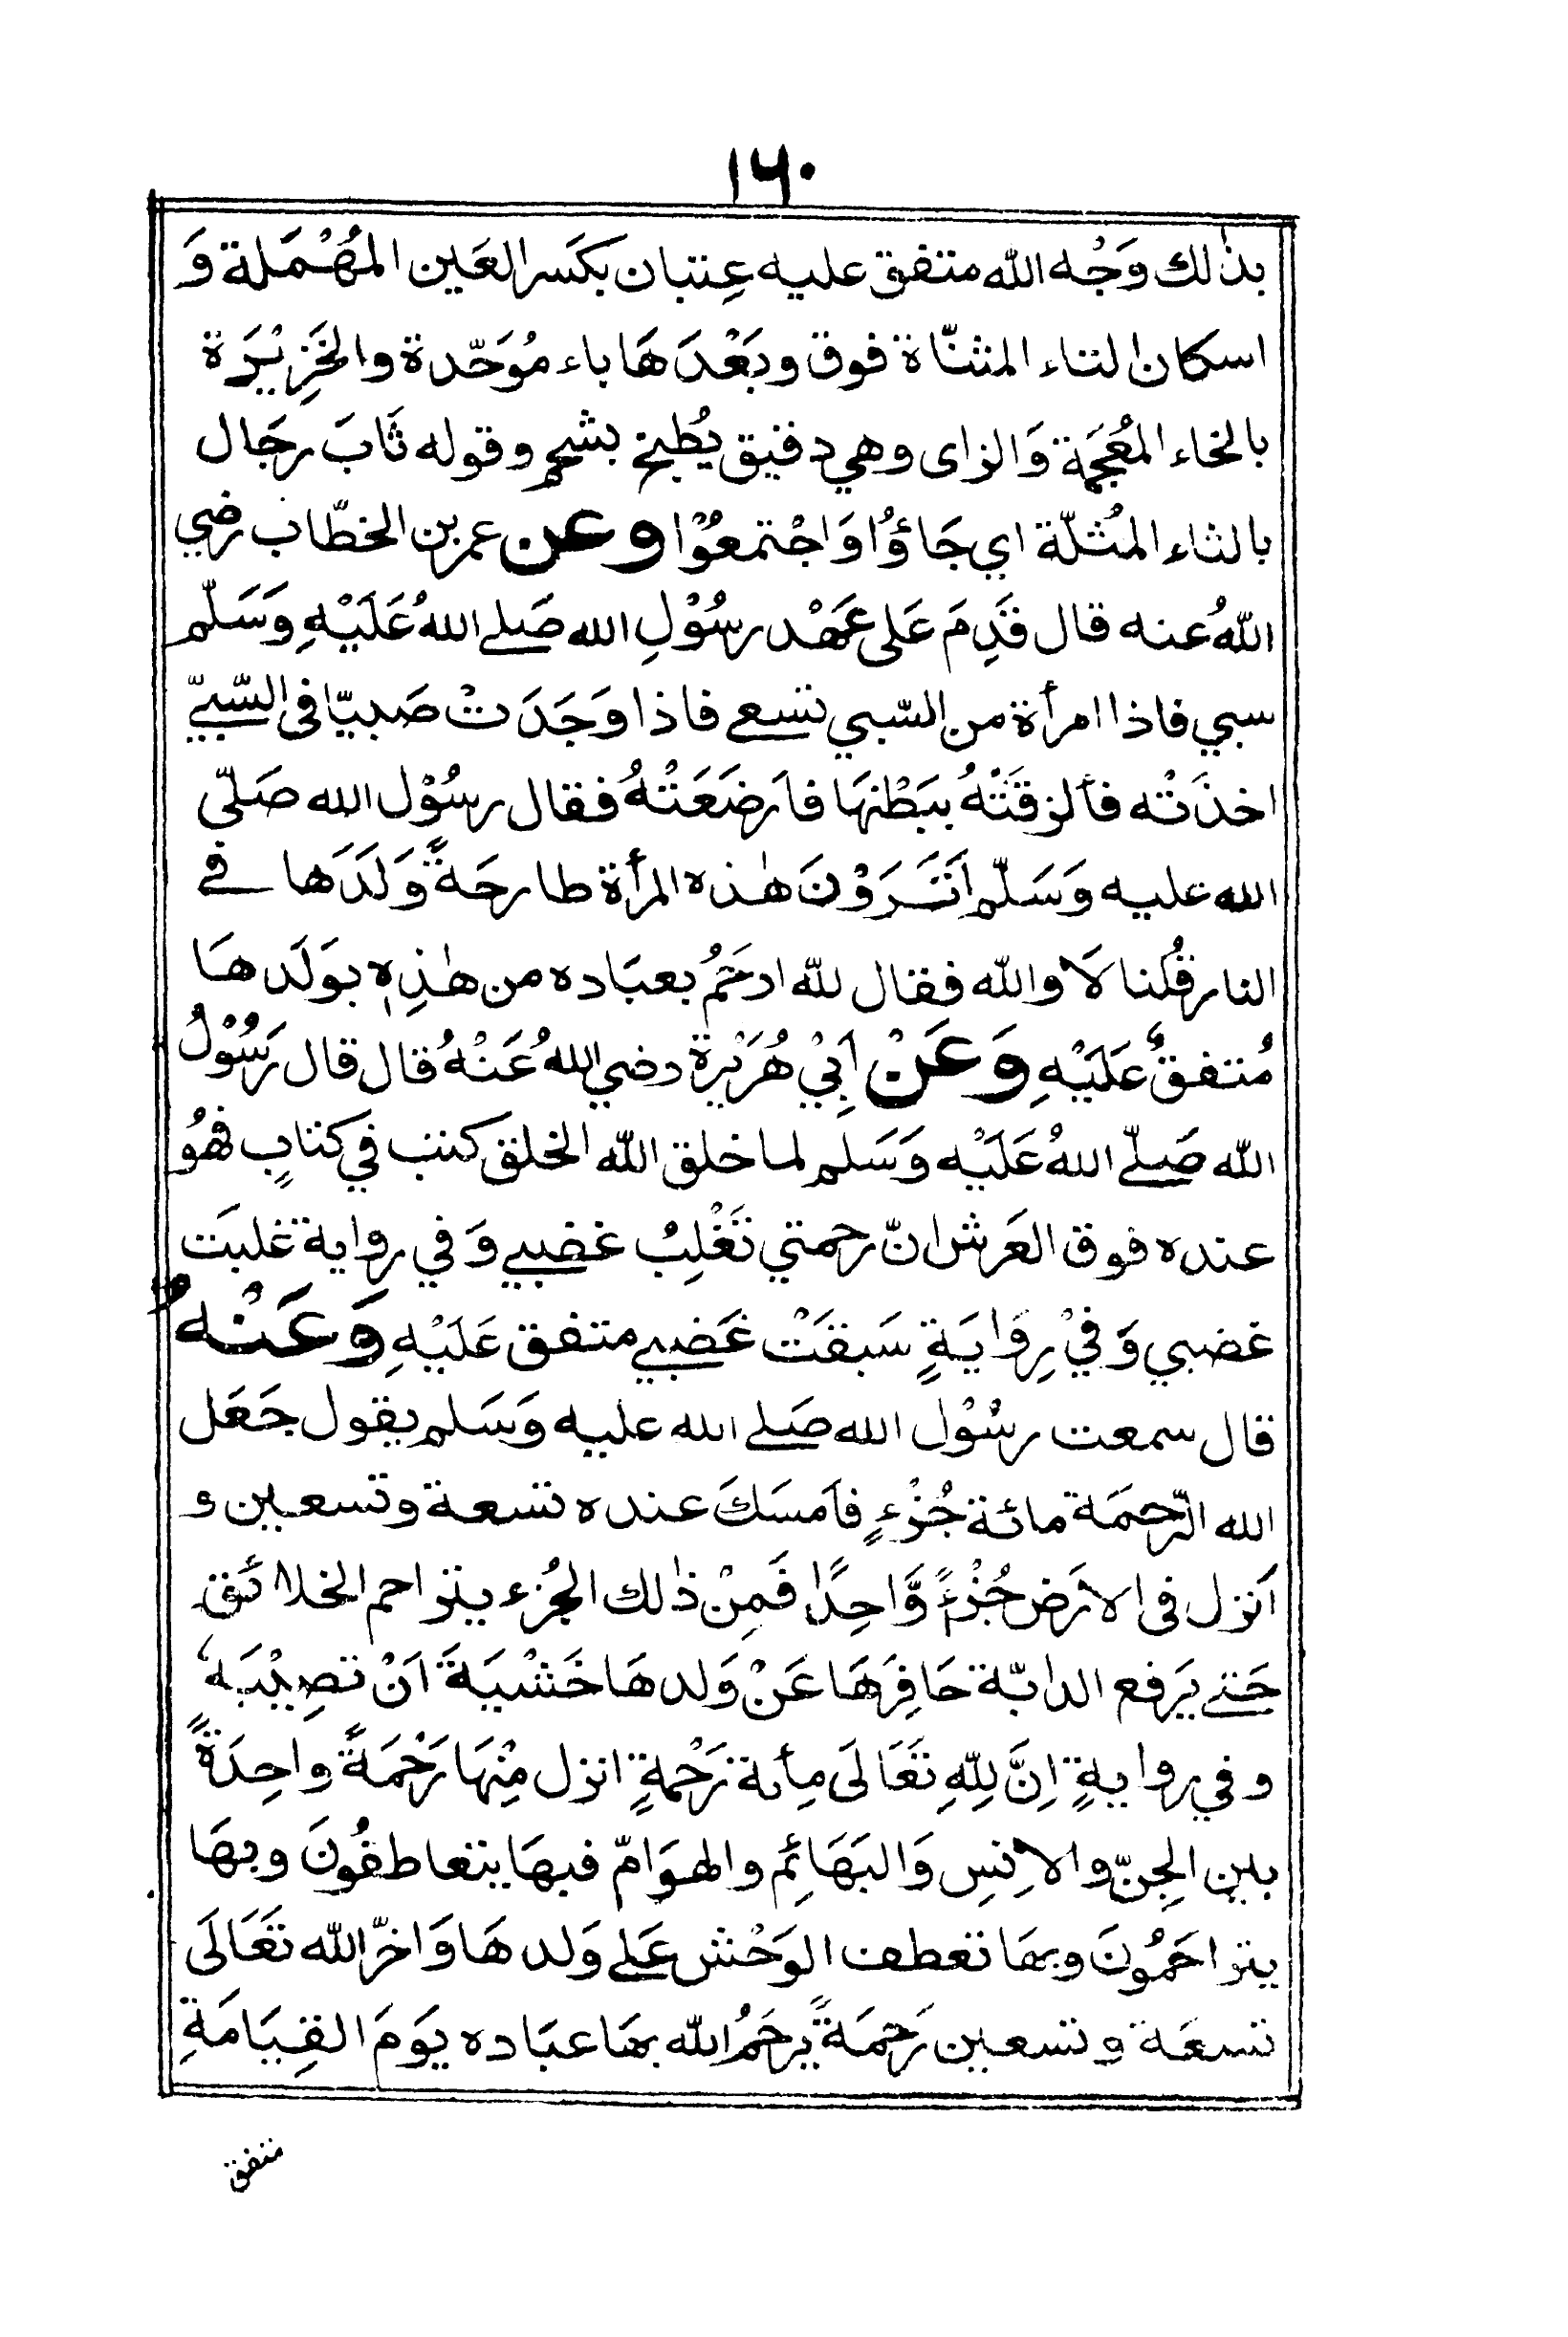 ١٦٠
بذٰلك وَجْه الله متفق عليه عِتبان بكَسر العَين المُهْمَلة وَ
اسكان التاء المثنّاة فوق وبَعْدَ هَا باء مُوَحّدة والخَزِيْرَة
بالخاء المُعجَمَة وَالزاى وهي دقيق يُطبخ بشحمٍ وقوله ثَابَ رجَال
بالثاء المُثلّثة اي جَاؤُا وَاجْتمعُوْا وعن عمر بن الخطّاب رضي
اللهُ عنه قال قَدِمَ عَلى عَهْد رسُوْلِ الله صَلى اللهُ عَلَيْهِ وَسَلّم
سبي فاذا امرأة من السّبي تسعى فاذا وَجَدَتْ صَبيّا فى السّبيّ
اخذَتْه فألزقَتْهُ ببَطْنهَا فاَرضَعَتْهُ فقال رسُوْل الله صَلّى
الله عليه وَسَلّم اَتَرَوْنَ هٰذه المرأة طارحَةً وَلَدَها في
النار قُلنا لَا والله فقال لله ارحَمُ بعبَاده من هٰذِهٖ بوَلَدهَا
مُتفقٌ عَلَيْهِ وَعَنْ اَبِيْ هُرَيْرة رضي اللهُ عَنْهُ قال قال رَسُوْلُ
الله صَلّى اللهُ عَلَيْه وَسَلم لما خلق الله الخلق كتب في كتابٍ فهُو
عنده فوق العَرش انّ رحمتي تَغْلِبُ غضبي وَفي رواية غلبَت
غضبي وَفيْ رِوَايَةٍ سَبقَتْ غَضبي متفق عَلَيْهِ وَعَنْهُ
قال سمعت رسُوْل الله صَلى الله عليه وَسَلم يقول جَعَل
الله الرّحمَة مائة جُزْءٍ فاَمسَكَ عنده تسعة وتسعين و
اَنزل فى الاَرَض جُزْءً وَّاحِدًا فَمِنْ ذٰلك الجُزء يتراحم الخلائق
حَتى يَرفع الدابّة حَافِرَهَا عَنْ وَلدهَا خَشْيَةَ اَنْ تصِيْبَهٗ
وفي روايةٍ اِنَّ لِلّٰهِ تَعَالَى مِأئة رَحْمةٍ انزل مِنْهَا رَحْمَةً واحِدَةً
بين الجِنّ والاِنسِ وَالبَهَائِم والهوَامّ فبهَا يتعاطفُونَ وبهَا
يتراحَمُونَ وبهَا تعطف الوَحْش عَلى وَلدهَا وَاخرّ الله تَعَالَى
تسعَة وتسعين رَحمَةً يرحَمُ الله بهَا عبَاده يَومَ القِيَامَةِ
متفق